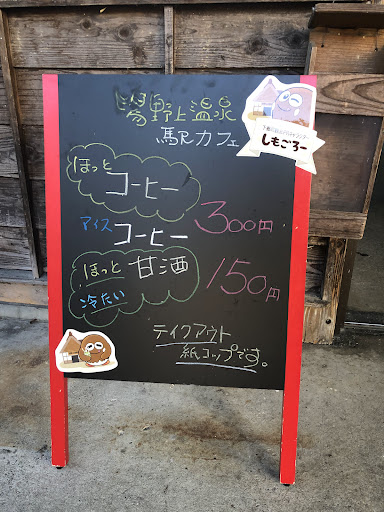 湯野上温泉
駅カフェ
しもごろー
ほっと
コーヒー
アイス コーヒー
300円
ほっと 甘酒
冷たい
150円
テイクアウト
紙コップです。